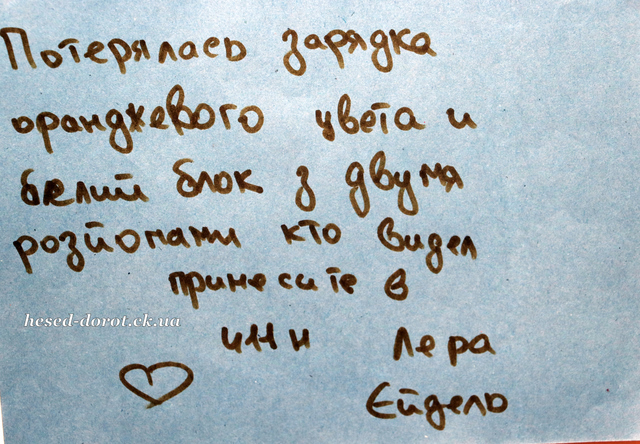 Потерялась зарядка
оранджевого цвета и
белий блок з двумя
розйомами кто видел
принесите в
hesed-dorot.ck.ua
Лера
Єйдель